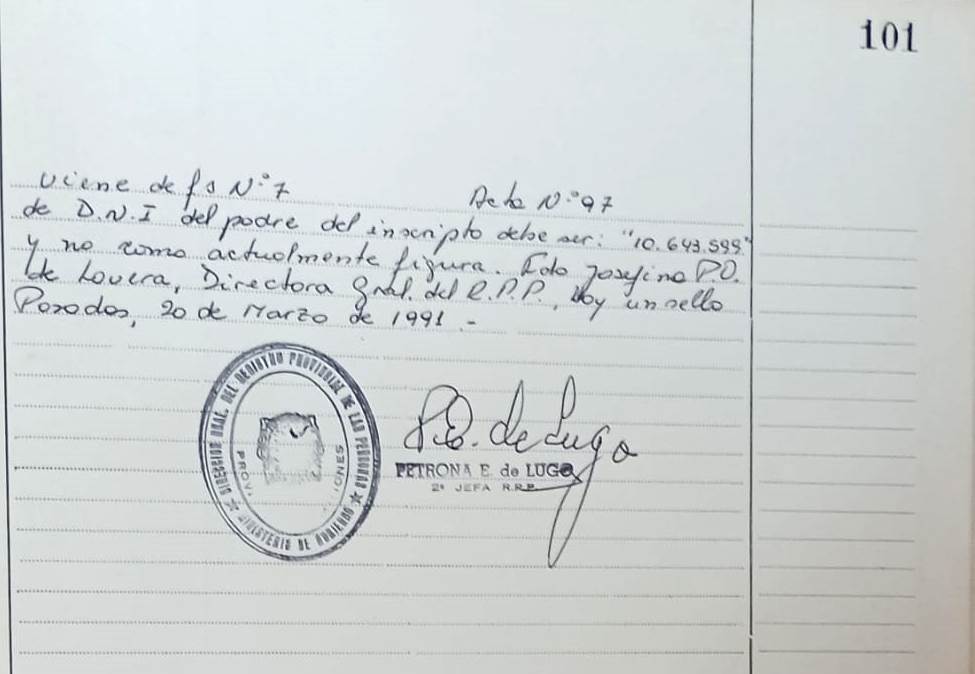 101
Viene de fs N.º 7
Acta N.º 97
de D.N.I del padre del inscripto debe ser: "10.643.599"
y no como actualmente figura. Fdo Josefina P.O.
de Lovera, Directora Gral. del R.P.P. Hay un sello
Posadas, 20 de Marzo de 1991.-
DIRECCION GRAL. DEL REGISTRO PROVINCIAL DE LAS PERSONAS
MINISTERIO DE GOBIERNO
PROVI
IONES
P.E. de Lugo
PETRONA E. de LUGO
2ª JEFA R.P.P.